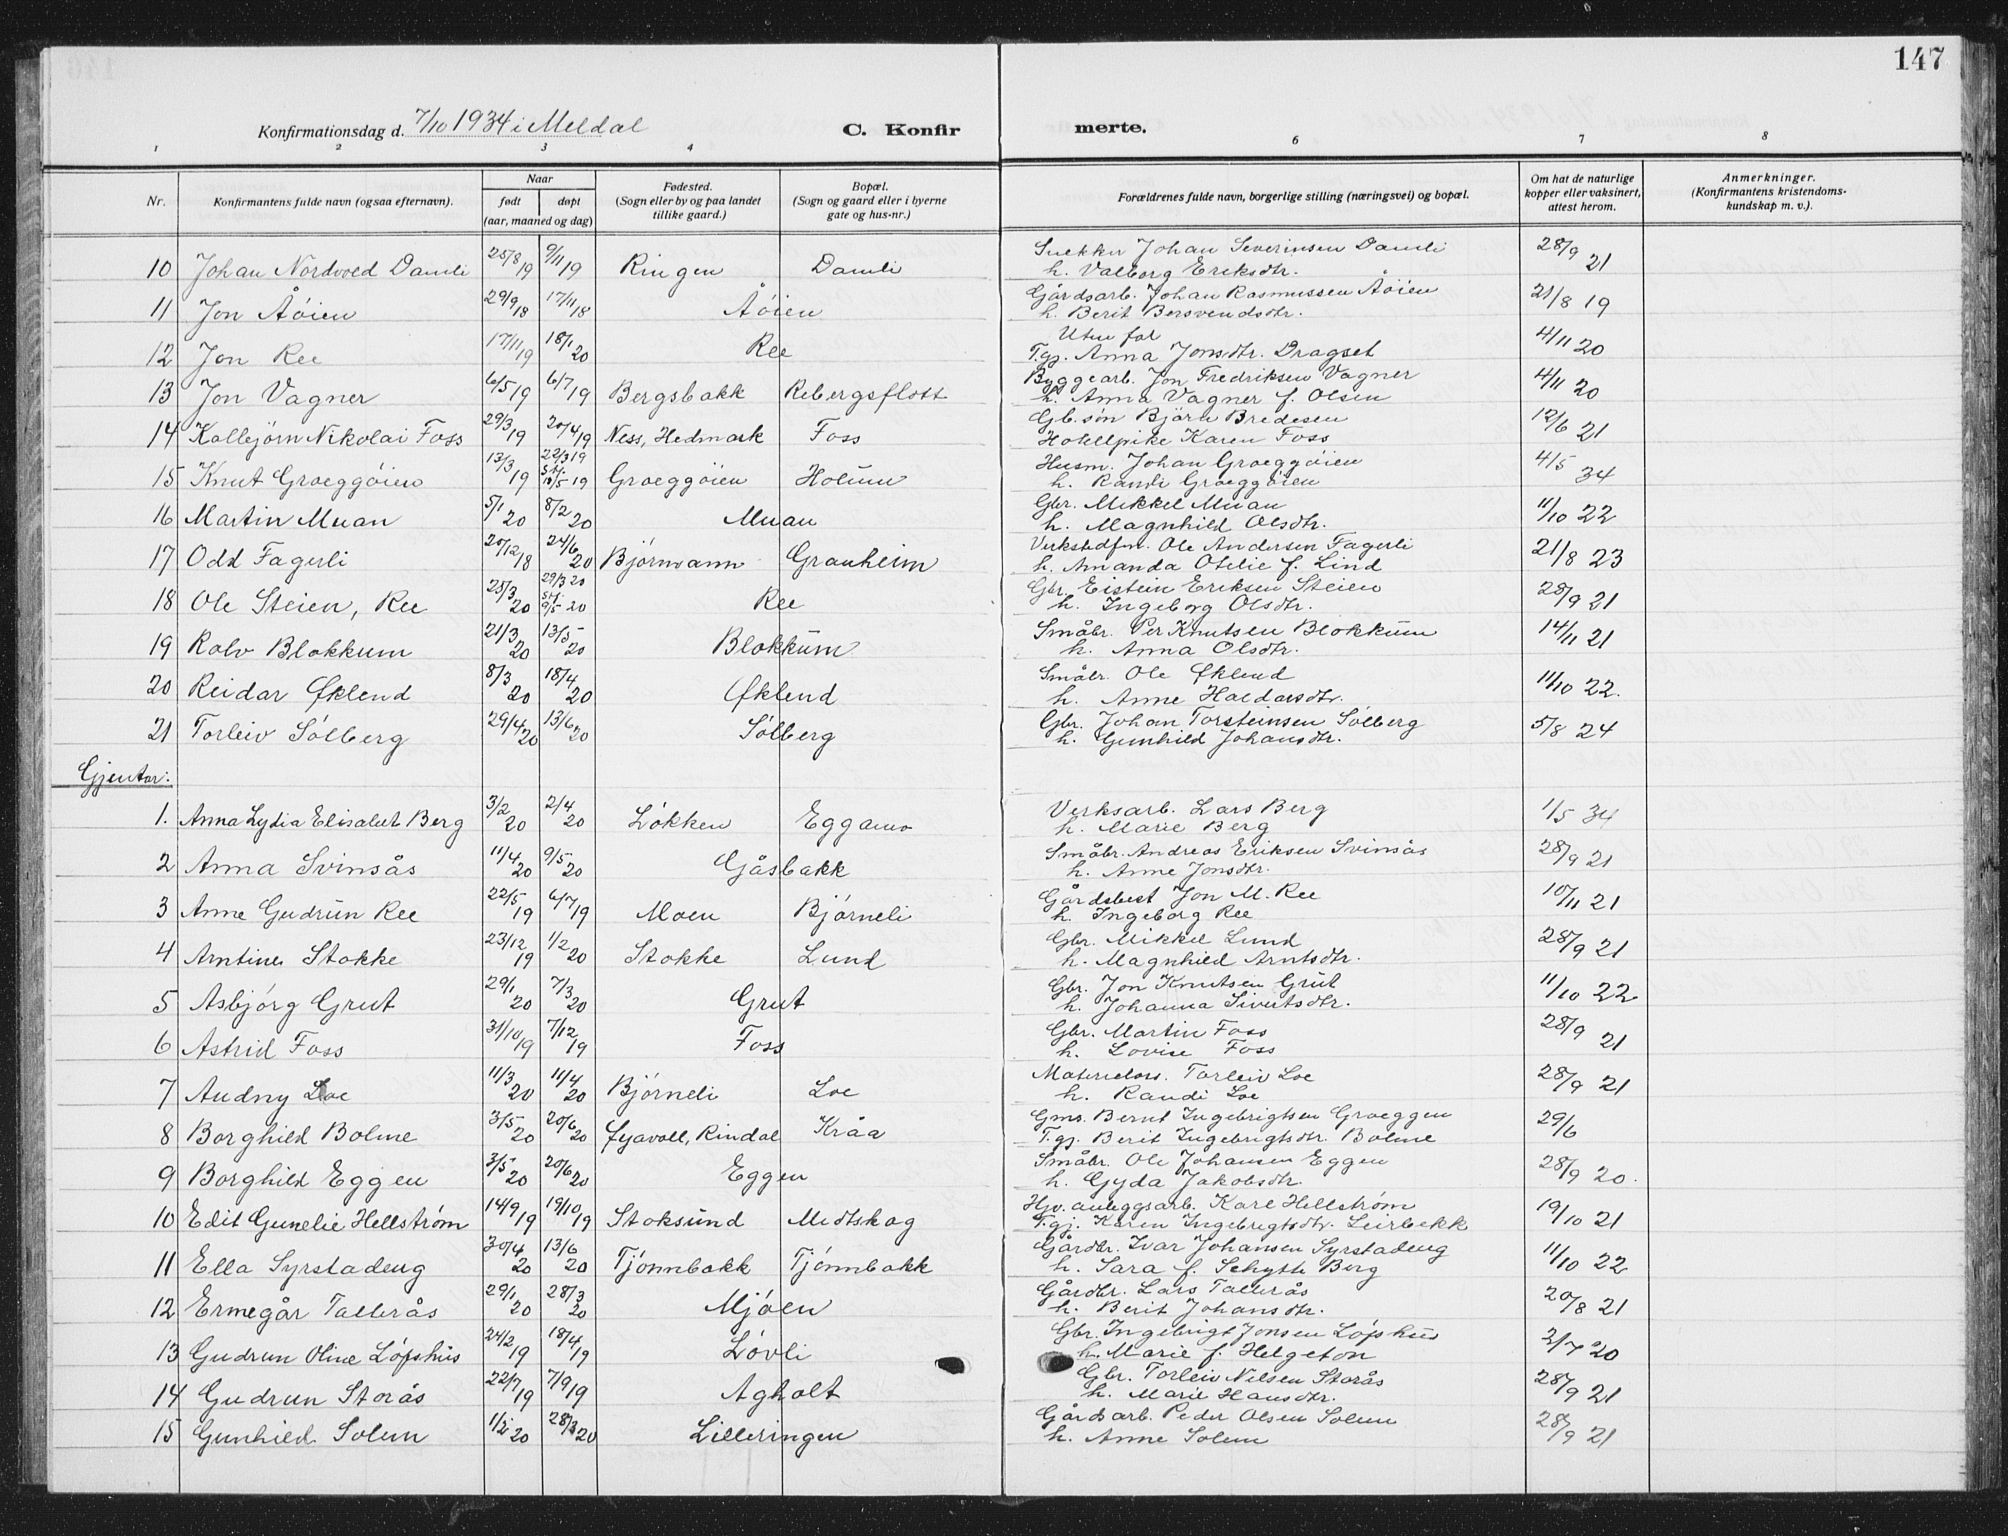 147
Konfirmationsdag d. 7/10 1934 i Meldal
C. Konfirmerte.
1 2 3 4 6 7 8
Nr. Konfirmantens fulde navn (ogsaa efternavn). Naar født døpt (aar, maaned og dag) Fødested. (Sogn eller by og paa landet tillike gaard.) Bopæl. (Sogn og gaard eller i byerne gate og hus-nr.) Forældrenes fulde navn, borgerlige stilling (næringsvei) og bopæl. Om hat de naturlige kopper eller vaksinert, attest herom. Anmerkninger. (Konfirmantens kristendoms-kundskap m. v.).
10 Johan Nordvold Damli 25/8 19 9/11 19 Ringen Damli Snekker Johan Severinsen Damli 28/9 21
h. Valborg Eriksdtr.
11 Jon Åöien 29/9 18 17/11 18 Åöien Gårdsarb. Johan Rasmussen Åöien 21/8 19
h. Berit Bersvendsdtr.
12 Jon Ree 17/11 19 18/1 20 Ree Utenfor 4/11 20
T.gj. Anna Jonsdtr. Dragset
13 Jon Vagner 6/5 19 6/7 19 Bergsbakk Rebergsflott Byggearb. Jon Fredriksen Vagner 4/11 20
h. Anna Vagner f. Olsen
14 Kallejörn Nikolai Foss 29/3 19 20/4 19 Ness, Hedmark Foss Gb.sön Björn Bredesen 12/6 21
Hotellpike Karen Foss
15 Knut Græggöien 13/3 19 22/3 19 Stf. 18/5 19 Græggöien Holum Husm. Johan Græggöien 4/5 34
h. Randi Græggöien
16 Martin Muan 5/1 20 8/2 20 Muan Gbr. Mikkel Muan 11/10 22
h. Magnhild Olsdtr.
17 Odd Fagerli 20/12 18 24/6 20 Björnvann Granheim Verkstedfm. Ole Andersen Fagerli 21/8 23
h. Amanda Otelie f. Lind
18 Ole Steien, Ree 25/3 20 29/3 20 Stf. 9/5 20 Ree Gbr. Eistein Eriksen Steien 28/9 21
h. Ingeborg Olsdtr.
19 Rolv Blokkum 21/3 20 13/5 20 Blokkum Småbr. Per Knutsen Blokkum 14/11 21
h. Anna Olsdtr.
20 Reidar Øklend 8/3 20 18/4 20 Øklend Småbr. Ole Øklend 11/10 22.
h. Anne Haldorsdtr.
21 Torleiv Sölberg 29/4 20 13/6 20 Sölberg Gbr. Johan Torsteinsen Sölberg 5/8 24
h. Gunhild Johansdtr.
Gjentor:
1. Anna Lydia Elisabet Berg 3/2 20 2/4 20 Lökken Eggamo Verksarb. Lars Berg 1/5 34
h. Marie Berg
2 Anna Svinsås 11/4 20 9/5 20 Gåsbakk Småbr. Andreas Eriksen Svinsås 28/9 21
h. Anne Jonsdtr.
3 Anne Gudrun Ree 22/5 19 6/7 19 Moen Björneli Gårdsbest Jon M. Ree 10/11 21
h. Ingeborg Ree
4 Arntine Stokke 23/12 19 1/2 20 Stokke Lund Gbr. Mikkel Lund 28/9 21
h. Magnhild Arntsdtr.
5 Asbjörg Grut 29/1 20 7/3 20 Grut Gbr. Jon Knutsen Grut 11/10 22
h. Johanna Sivertsdtr.
6 Astrid Foss 31/10 19 7/12 19 Foss Gbr. Martin Foss 28/9 21
h. Lovise Foss
7 Audny Loe 11/3 20 11/4 20 Björneli Loe Torleiv Loe 28/9 21
h. Randi Loe
8 Borghild Bolme 3/5 20 20/6 20 Fyavoll, Rindal Kråa Gms. Bernt Ingebrigtsen Græggen 29/6
T.gj. Berit Ingebrigtsdtr. Bolme
9 Borghild Eggen 3/5 20 20/6 20 Eggen Småbr. Ole Johansen Eggen 28/9 20.
h. Gyda Jakobsdtr.
10 Edit Gunelie Hellström 14/9 19 19/10 19 Stoksund Medtskog Hjv. anleggsarb. Karl Hellström 19/10 21
T.gj. Karen Ingebrigtsdtr. Leirbekk
11 Ella Syrstadeng 30/4 20 13/6 20 Tjönnbakk Tjönnbakk Gårdbr. Ivar Johansen Syrstadeng 11/10 22
h. Sara f. Schytte Berg
12 Ermegår Tallerås 29/1 20 28/3 20 Mjöen Gårdbr. Lars Tallerås 20/8 21
h. Berit Johansdtr.
13 Gudrun Oline Löfshus 24/2 19 18/4 19 Lövli Gbr. Ingebrigt Jonsen Löfshus 2/7 20
h. Marie f. Helgeton
14 Gudrun Storås 22/7 19 7/9 19 Agholt Gbr. Torleiv Nilsen Storås 28/9 21
h. Marie Hansdtr.
15 Gunhild Solem 1/2 20 28/3 20 Lilleringen Gårdsarb. Peder Olsen Solem 28/9 21
h. Anne Solem